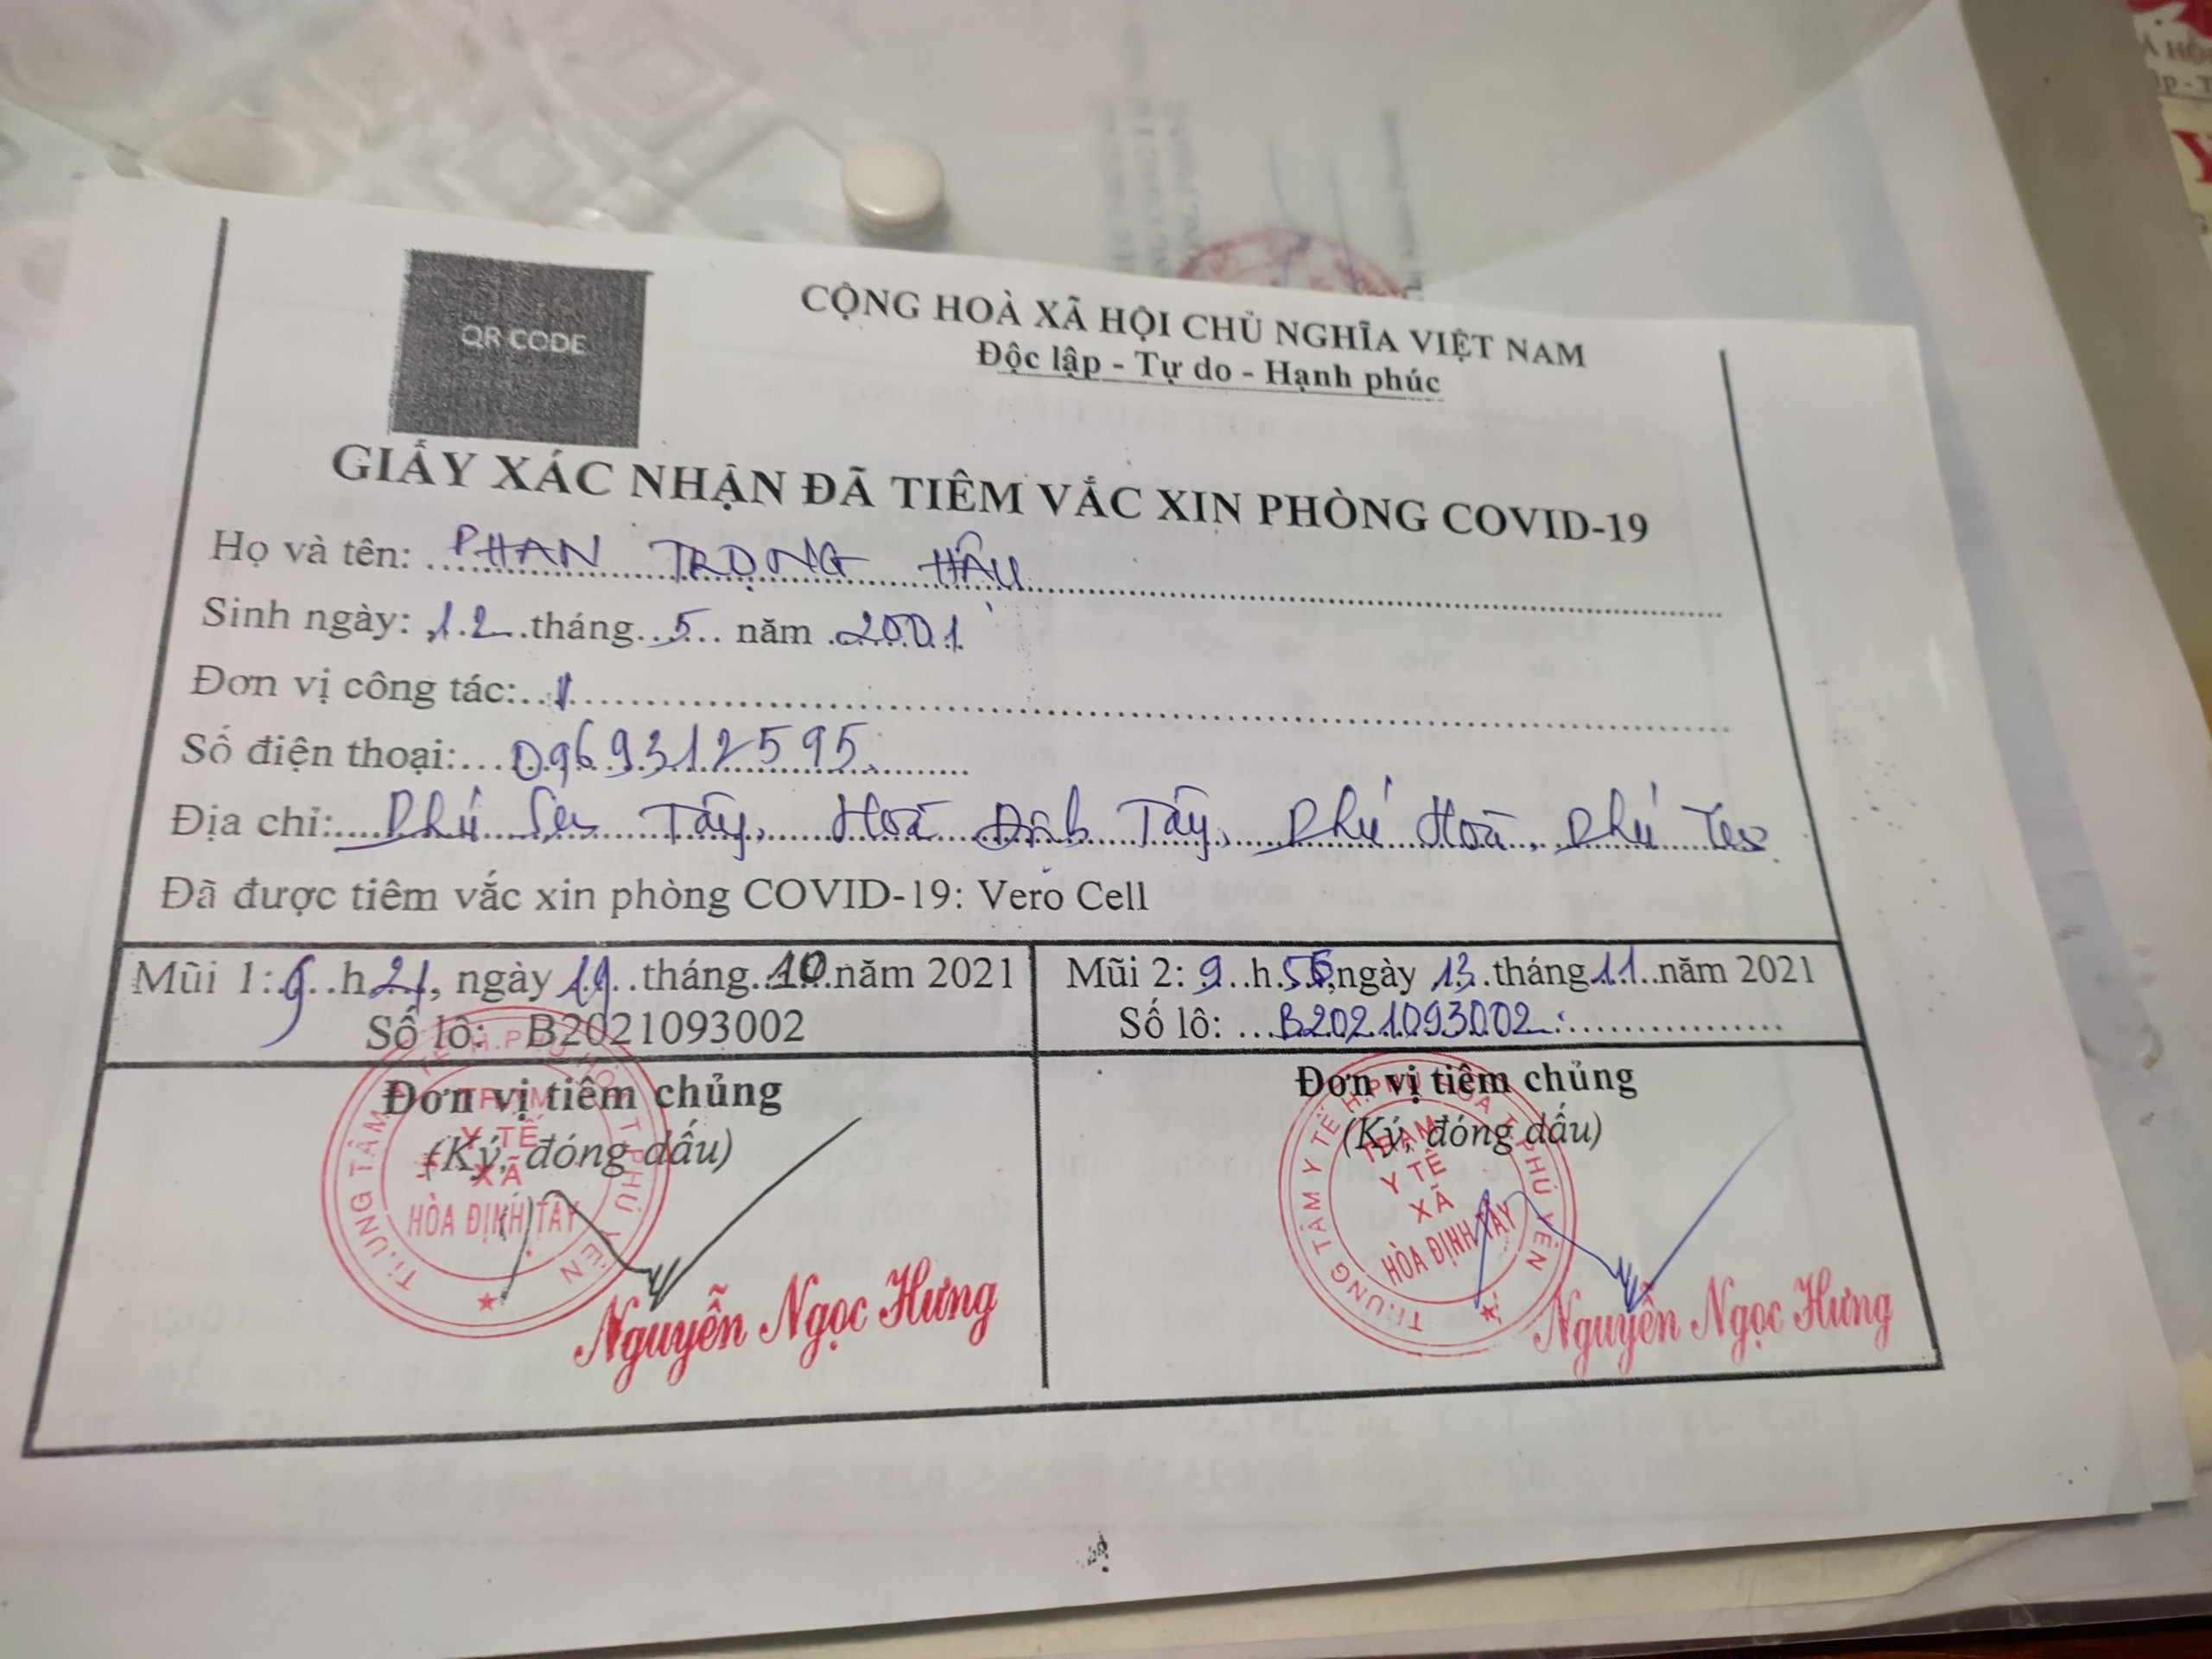 QR CODE
CỘNG HOÀ XÃ HỘI CHỦ NGHĨA VIỆT NAM
Độc lập - Tự do - Hạnh phúc
GIẤY XÁC NHẬN ĐÃ TIÊM VẮC XIN PHÒNG COVID-19
Họ và tên: PHAN TRỌNG HẬU
Sinh ngày: 12 tháng 5 năm 2001
Đơn vị công tác:
Số điện thoại: 0969312595
Địa chỉ: Phú Sen Tây, Hoà Định Tây, Phú Hoà, Phú Yên
Đã được tiêm vắc xin phòng COVID-19: Vero Cell
Mũi 1: 9 h 21, ngày 19 tháng 10 năm 2021
Số lô: B2021093002
Mũi 2: 9 h ngày 13 tháng 11 năm 2021
Số lô: B2021093002
Đơn vị tiêm chủng
(Ký, đóng dấu)
TRUNG TÂM Y TẾ H.PHÚ HÒA T.PHÚ YÊN
TRẠM
Y TẾ
XÃ
HÒA ĐỊNH TÂY
Nguyễn Ngọc Hưng
Đơn vị tiêm chủng
(Ký, đóng dấu)
TRUNG TÂM Y TẾ H.PHÚ HÒA T.PHÚ YÊN
TRẠM
Y TẾ
XÃ
HÒA ĐỊNH TÂY
Nguyễn Ngọc Hưng